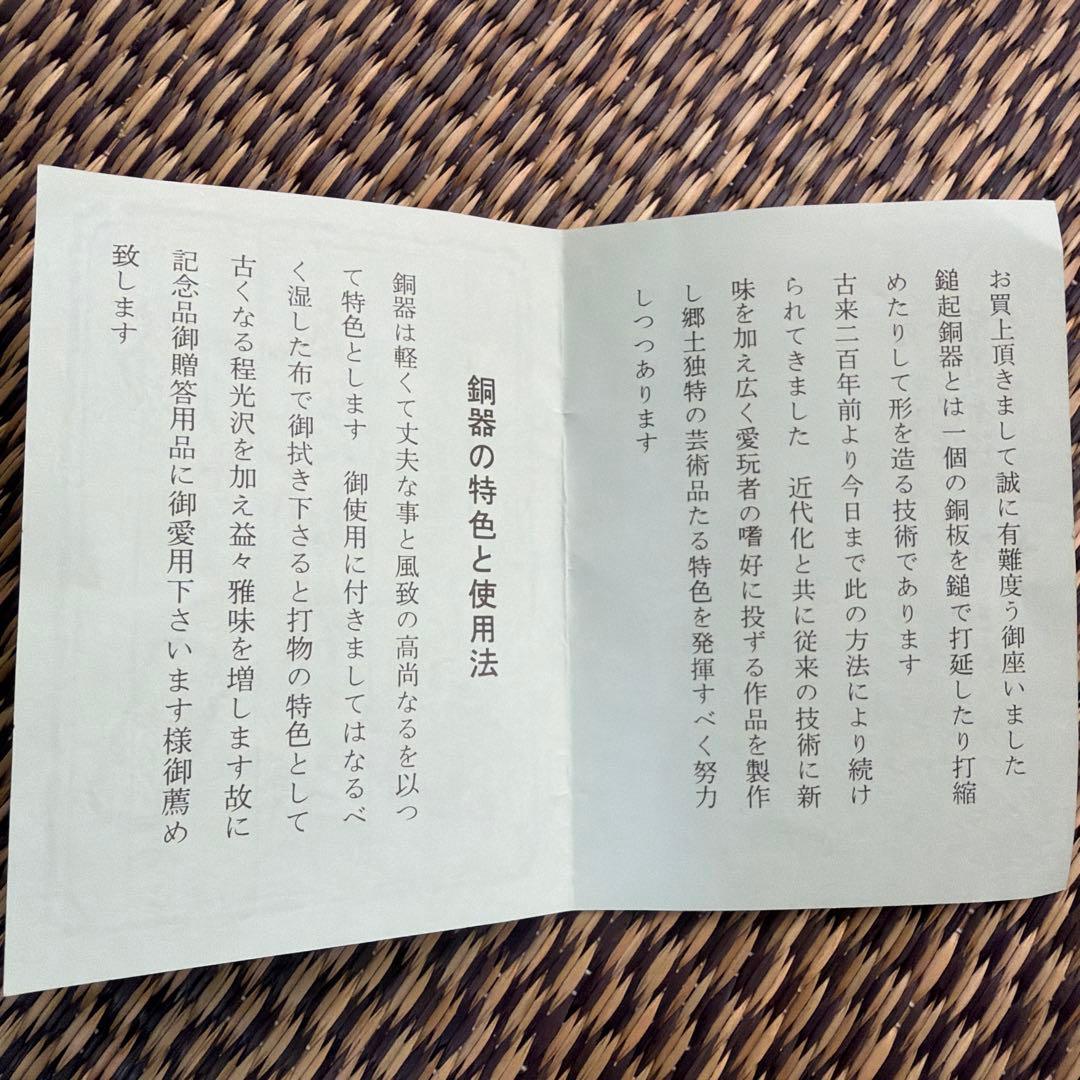 お買上頂きまして誠に有難度う御座いました
鎚起銅器とは一個の銅板を鎚で打延したり打縮
めたりして形を造る技術であります
古来二百年前より今日まで此の方法により続け
られてきました　近代化と共に従来の技術に新
味を加え広く愛玩者の嗜好に投ずる作品を製作
し郷土独特の芸術品たる特色を発揮すべく努力
しつつあります
銅器の特色と使用法
銅器は軽くて丈夫な事と風致の高尚なるを以っ
て特色とします　御使用に付きましてはなるべ
く湿した布で御拭き下さると打物の特色として
古くなる程光沢を加え益々雅味を増します故に
記念品御贈答用品に御愛用下さいます様御薦め
致します